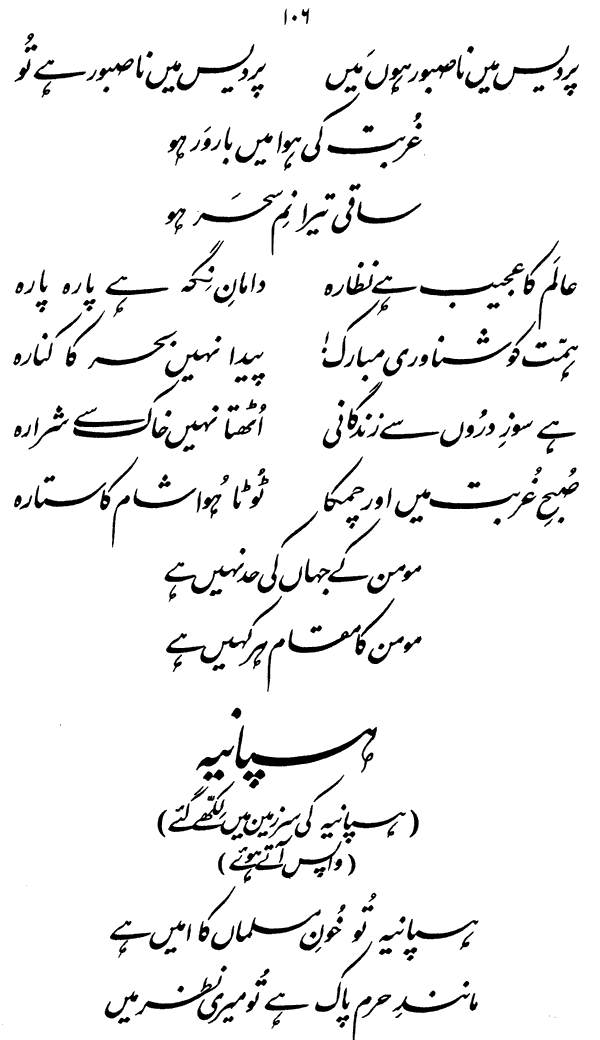 ۱۰۶
پردیس میں ناصبور ہوں مَیں پردیس میں ناصبور ہے تُو
غُربت کی ہوا میں باروَر ہو
ساقی تیرا نمِ سحَر ہو
عالَم کا عجیب ہے نظارہ دامانِ نِگہ ہے پارہ پارہ
ہمّت کو شناوری مبارک! پیدا نہیں بحر کا کنارہ
ہے سوزِ درُوں سے زندگانی اُٹھتا نہیں خاک سے شرارہ
صُبحِ غُربت میں اور چمکا ٹُوٹا ہُوا شام کا ستارہ
مومن کے جہاں کی حد نہیں ہے
مومن کا مقام ہر کہیں ہے
ہسپانیہ
(ہسپانیہ کی سرزمین میں لِکھّے گئے)
(واپس آتے ہوئے)
ہسپانیہ تُو خُونِ مسلماں کا امیں ہے
مانندِ حرم پاک ہے تُو میری نظر میں